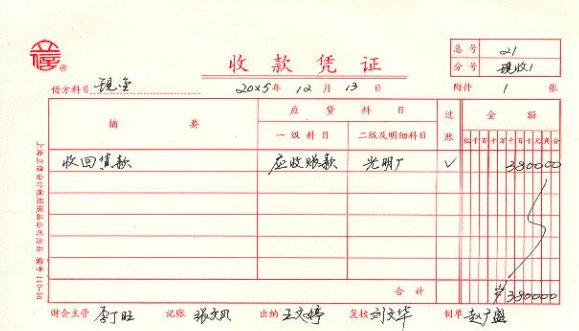 收款凭证
总号 21
分号 现收1
借方科目 现金 20×5年 12月 13日 附件 1 张
摘要 应贷科目 过账 金额
一级科目 二级及明细科目 亿千百十万千百十元角分
收回货款 应收账款 光明厂 √ 380000
合计 ¥380000
财会主管 李丁旺 记账 张文凤 出纳 王文婷 复核 刘文华 制单 赵广盛